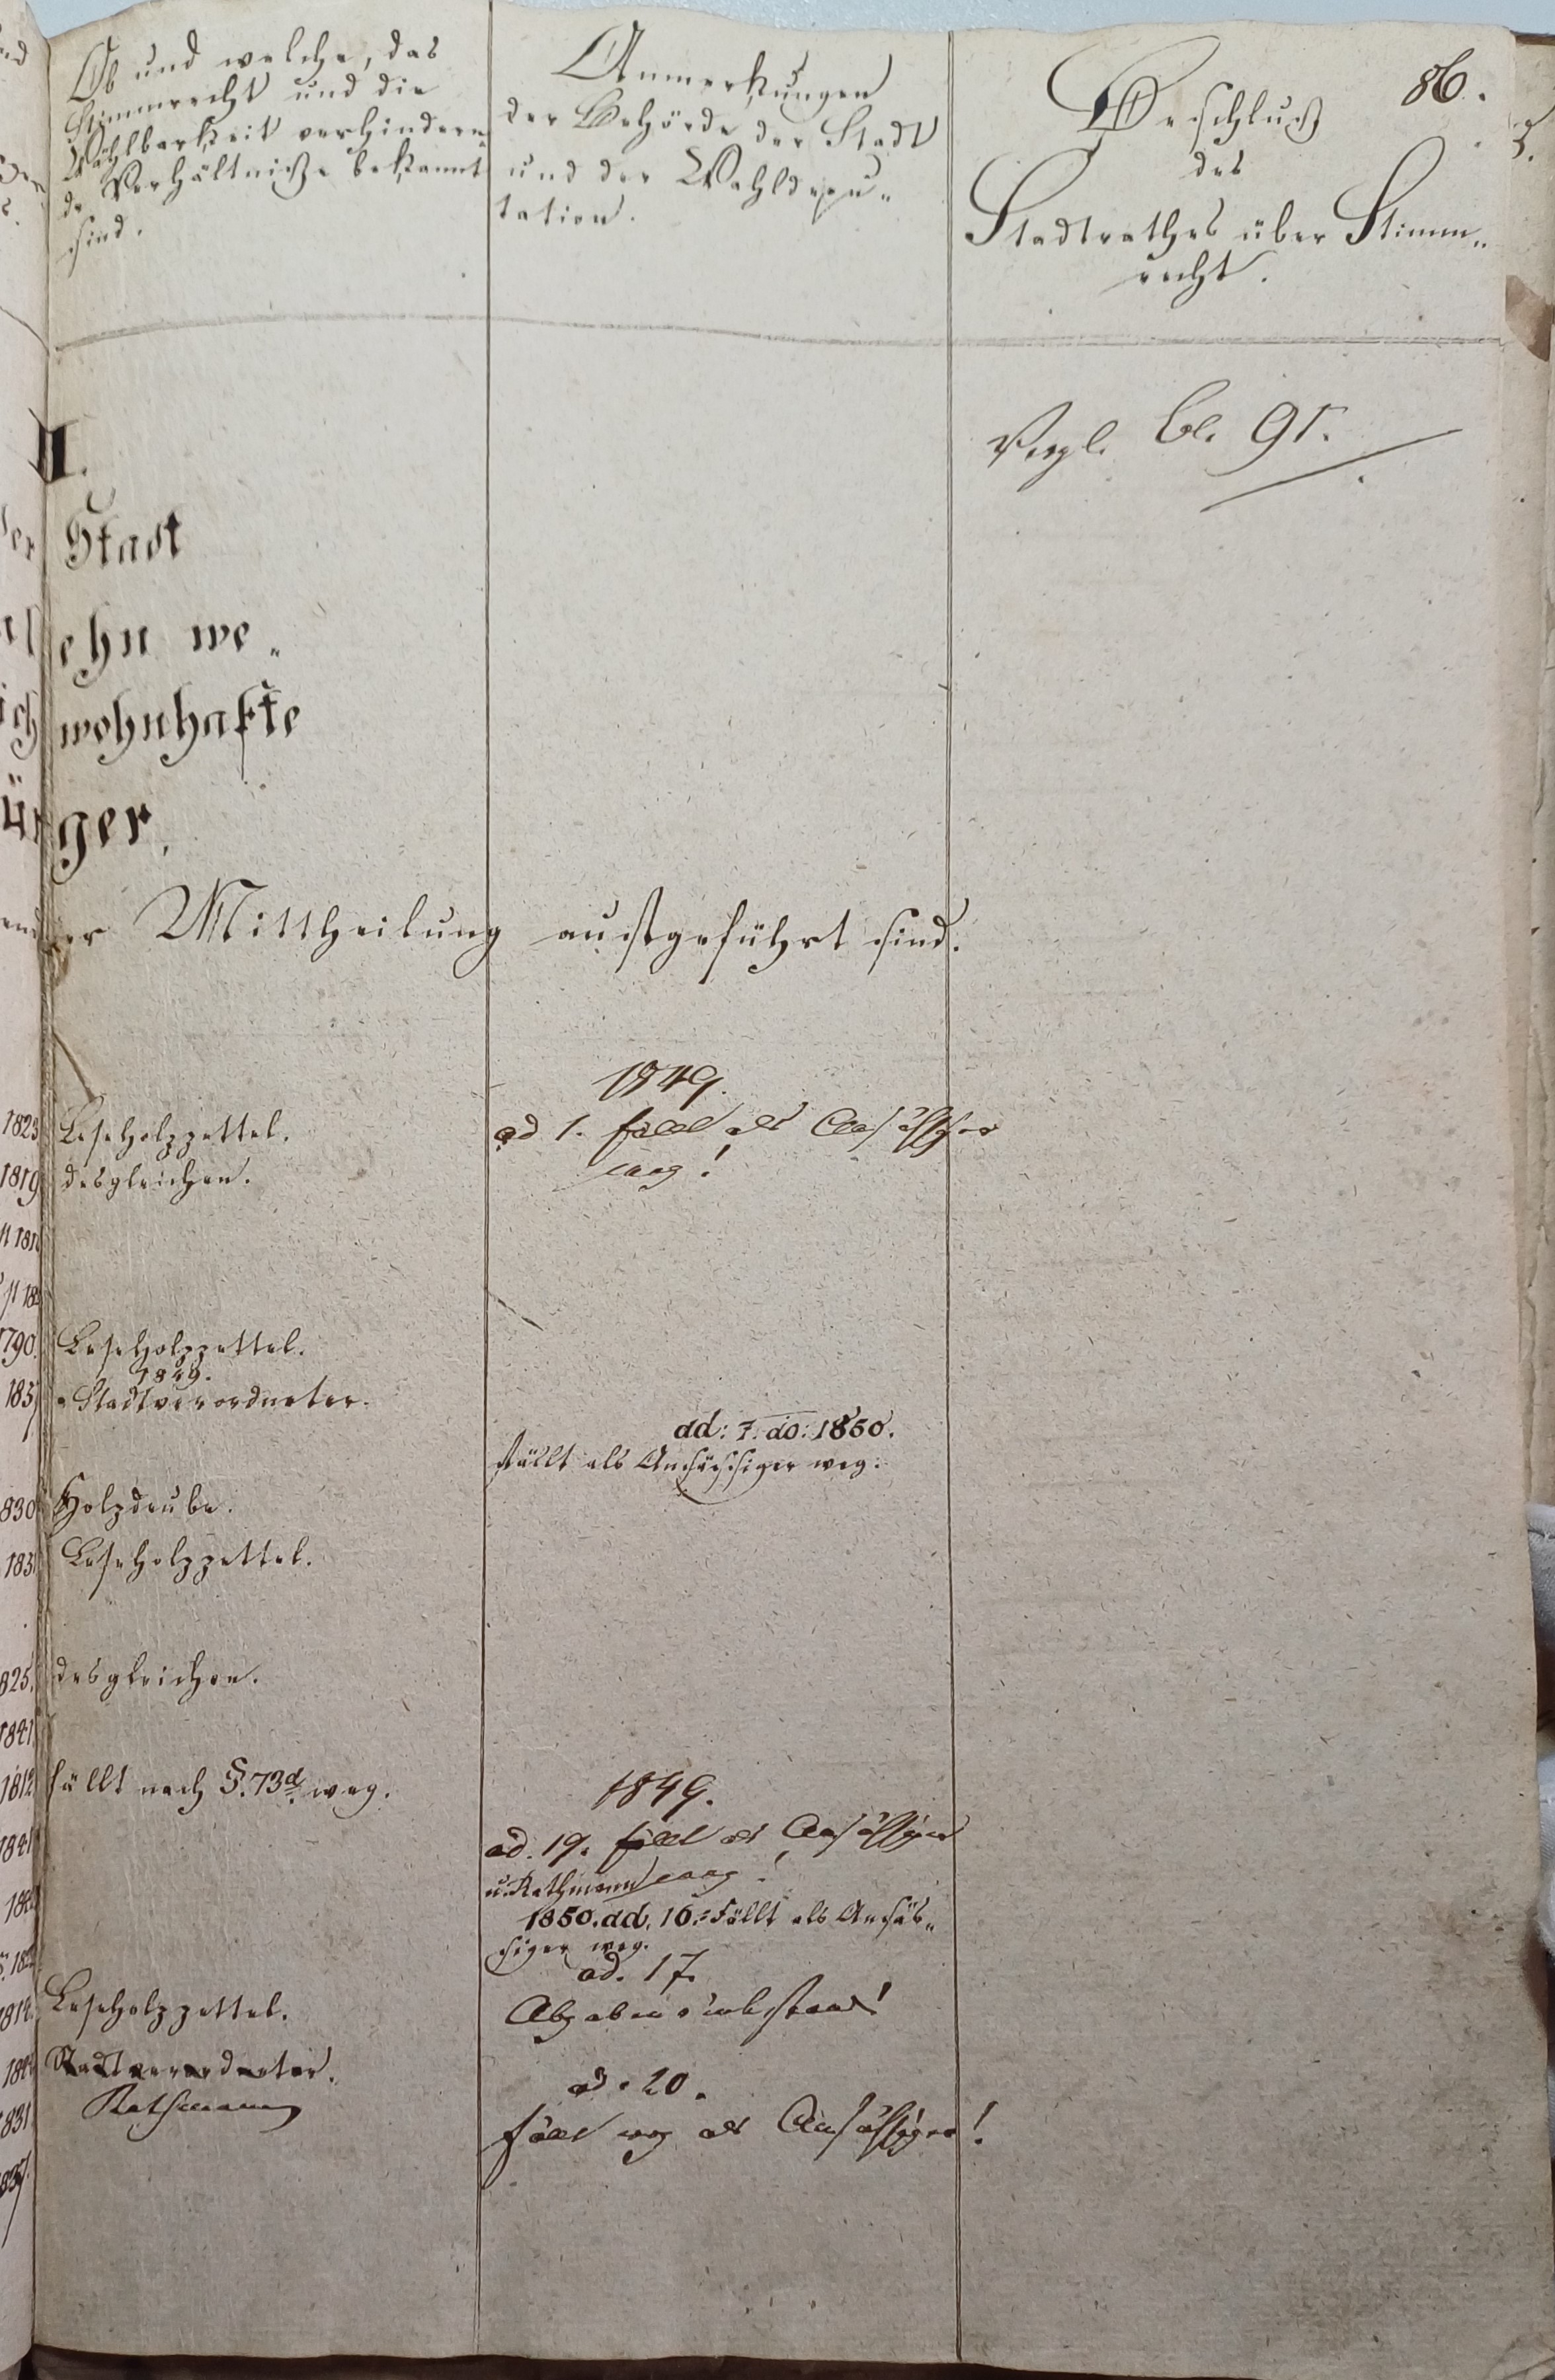 86.
Ob und welche, das
Stimmrecht und die
Wählbarkeit verhindern„
de Verhältniße bekannt
sind.
Anmerkungen
der Behörde der Stadt
und der Wahldepu„
tation.
Beschluß
des
Stadtrathes über Stimm„
recht.
Vergl. Bl. 91.
II.
Stadt
ehn we„
wohnhafte
ger.
er Mittheilung aufgeführt sind.
1849.
1823 Leseholzzettel.
ad 1. fällt als Ansässiger
weg!
1819 desgleichen.
1790. Leseholzzettel.
1849.
Stadtverordneter.
ad: 7. do: 1850.
fällt als Ansässiger weg.
830 Holzdeube.
183 Leseholzzettel.
825. desgleichen.
1841
1812 fällt nach §. 73d weg.
1849.
1841
ad. 19. fällt als Ansässiger
u. Rathmann weg!
1850. ad. 16. fällt als Ansäs„
siger weg.
ad. 17.
Leseholzzettel.
Abgabenrückstand!
Stadtverordneter.
ad. 20.
831. Rathmann
fällt weg als Ansässiger!